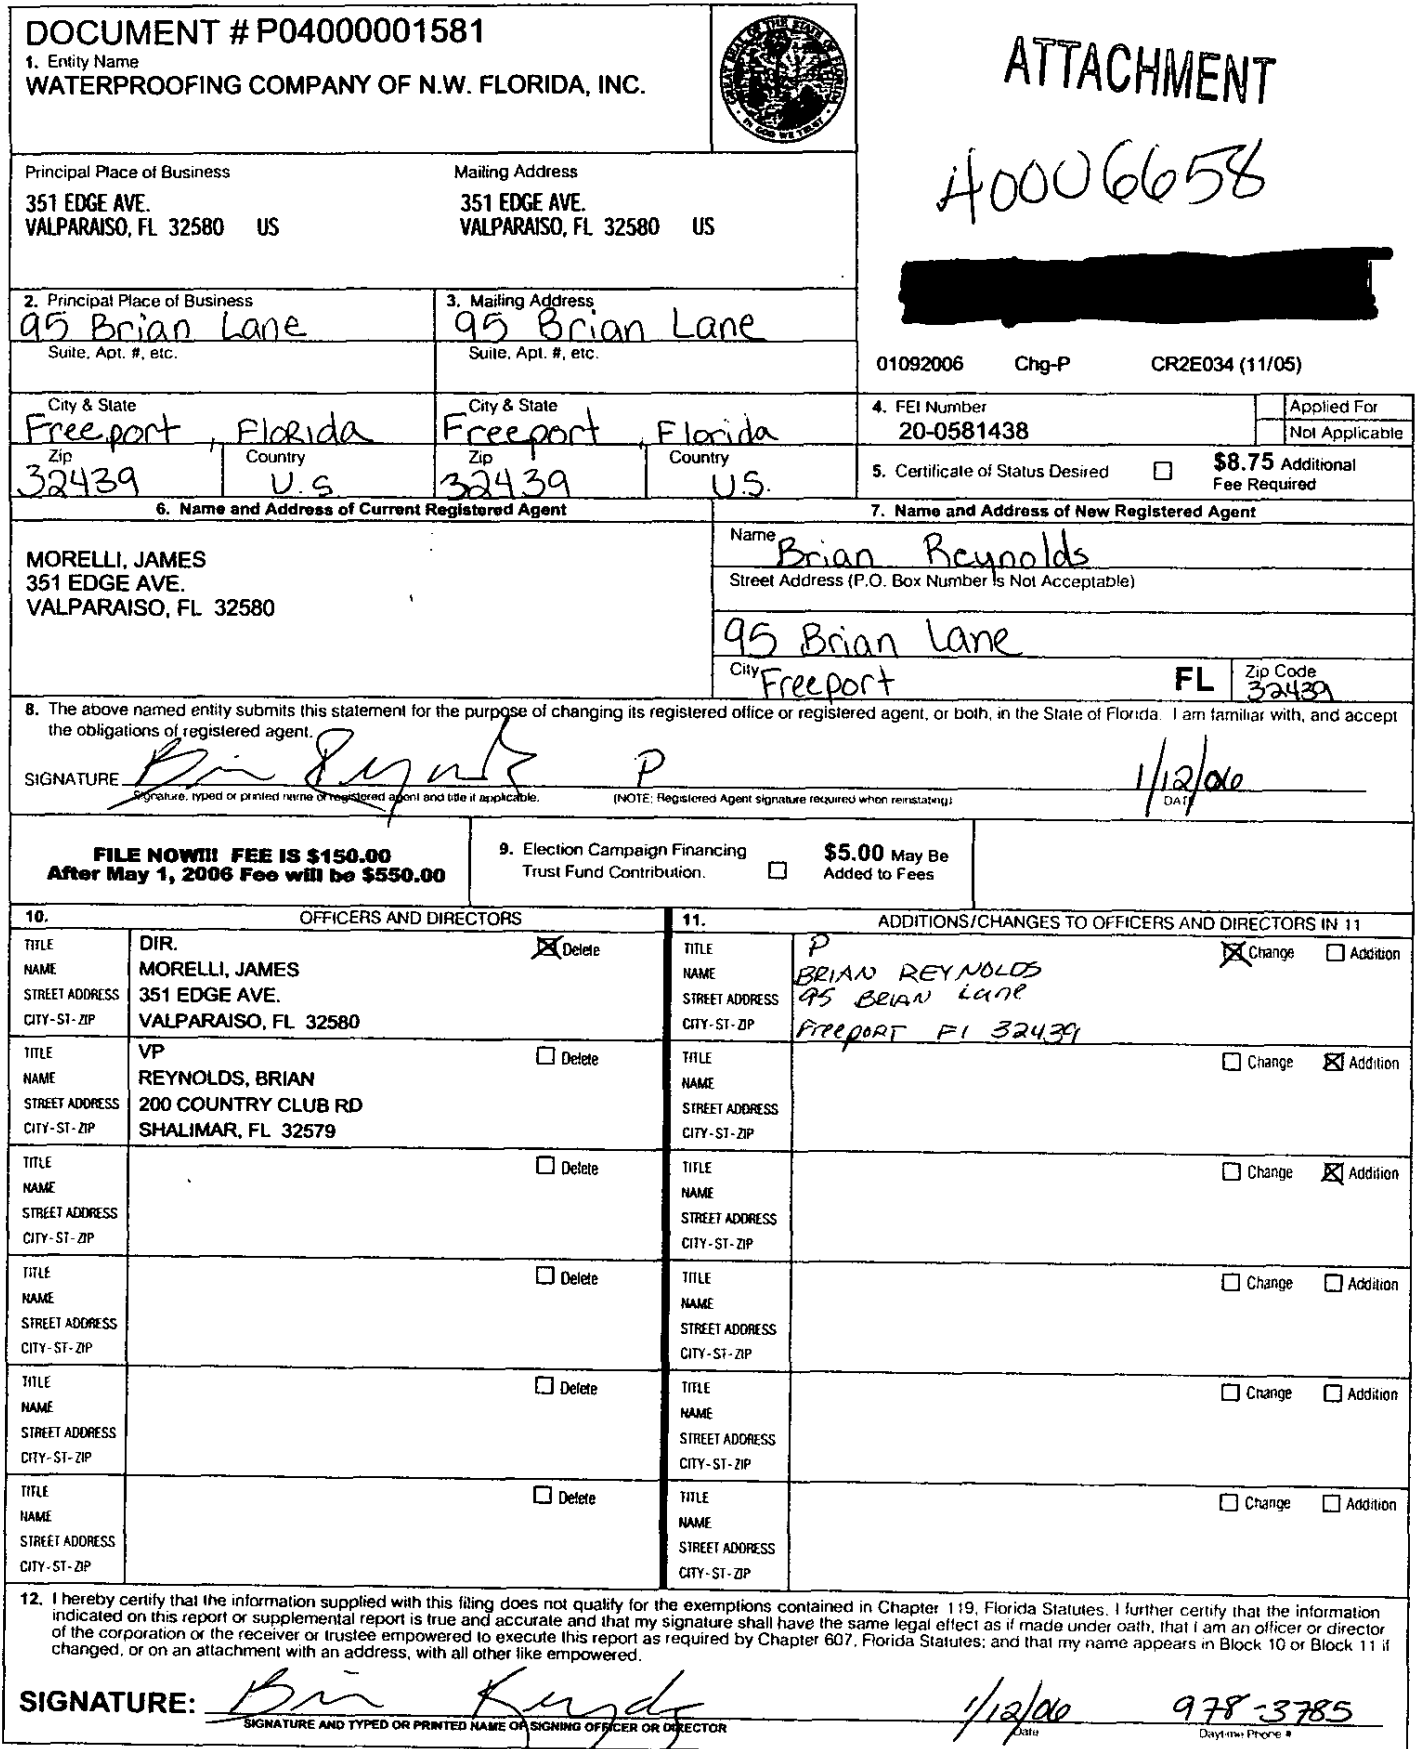 DOCUMENT # P04000001581
1. Entity Name
WATERPROOFING COMPANY OF N.W. FLORIDA, INC.
GREAT SEAL OF THE STATE OF FLORIDA
IN GOD WE TRUST
ATTACHMENT
40006658
Principal Place of Business
351 EDGE AVE.
VALPARAISO, FL 32580 US
Mailing Address
351 EDGE AVE.
VALPARAISO, FL 32580 US
2. Principal Place of Business
95 Brian Lane
Suite, Apt. #, etc.
3. Mailing Address
95 Brian Lane
Suite, Apt. #, etc.
01092006 Chg-P CR2E034 (11/05)
City & State
Freeport, Florida
City & State
Freeport, Florida
Zip Country
32439 U.S
Zip Country
32439 U.S.
4. FEI Number
20-0581438
Applied For
Not Applicable
5. Certificate of Status Desired
$8.75 Additional
Fee Required
6. Name and Address of Current Registered Agent
MORELLI, JAMES
351 EDGE AVE.
VALPARAISO, FL 32580
7. Name and Address of New Registered Agent
Name Brian Reynolds
Street Address (P.O. Box Number Is Not Acceptable)
95 Brian Lane
City Freeport FL Zip Code 32439
8. The above named entity submits this statement for the purpose of changing its registered office or registered agent, or both, in the State of Florida. I am familiar with, and accept
the obligations of registered agent.
SIGNATURE Brian Reynolds P 1/12/06
Signature, typed or printed name of registered agent and title if applicable. (NOTE: Registered Agent signature required when reinstating) DATE
FILE NOW!!! FEE IS $150.00
After May 1, 2006 Fee will be $550.00
9. Election Campaign Financing
Trust Fund Contribution.
$5.00 May Be
Added to Fees
10. OFFICERS AND DIRECTORS
TITLE DIR. Delete
NAME MORELLI, JAMES
STREET ADDRESS 351 EDGE AVE.
CITY-ST-ZIP VALPARAISO, FL 32580
TITLE VP Delete
NAME REYNOLDS, BRIAN
STREET ADDRESS 200 COUNTRY CLUB RD
CITY-ST-ZIP SHALIMAR, FL 32579
TITLE Delete
NAME
STREET ADDRESS
CITY-ST-ZIP
TITLE Delete
NAME
STREET ADDRESS
CITY-ST-ZIP
TITLE Delete
NAME
STREET ADDRESS
CITY-ST-ZIP
TITLE Delete
NAME
STREET ADDRESS
CITY-ST-ZIP
11. ADDITIONS/CHANGES TO OFFICERS AND DIRECTORS IN 11
TITLE P Change Addition
NAME BRIAN REYNOLDS
STREET ADDRESS 95 BRIAN Lane
CITY-ST-ZIP FreepORT Fl 32439
TITLE Change Addition
NAME
STREET ADDRESS
CITY-ST-ZIP
TITLE Change Addition
NAME
STREET ADDRESS
CITY-ST-ZIP
TITLE Change Addition
NAME
STREET ADDRESS
CITY-ST-ZIP
TITLE Change Addition
NAME
STREET ADDRESS
CITY-ST-ZIP
TITLE Change Addition
NAME
STREET ADDRESS
CITY-ST-ZIP
12. I hereby certify that the information supplied with this filing does not qualify for the exemptions contained in Chapter 119, Florida Statutes. I further certify that the information
indicated on this report or supplemental report is true and accurate and that my signature shall have the same legal effect as if made under oath, that I am an officer or director
of the corporation or the receiver or trustee empowered to execute this report as required by Chapter 607, Florida Statutes; and that my name appears in Block 10 or Block 11 if
changed, or on an attachment with an address, with all other like empowered.
SIGNATURE: Brian Reynolds 1/12/06 978-3785
SIGNATURE AND TYPED OR PRINTED NAME OF SIGNING OFFICER OR DIRECTOR Date Daytime Phone #